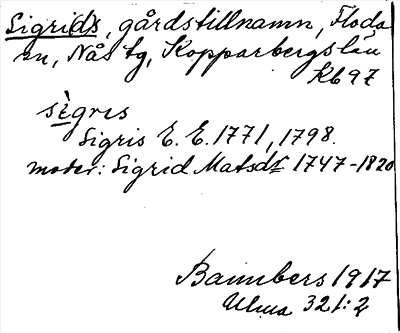 Sigrids, gårdstillnamn, Floda
sn, Nås tg, Kopparbergs län
Kb 97
sìgres
Sigris E. E. 1771, 1798.
moder: Sigrid Matsdr 1747-1820
Bannbers 1917
Ulma 321:2